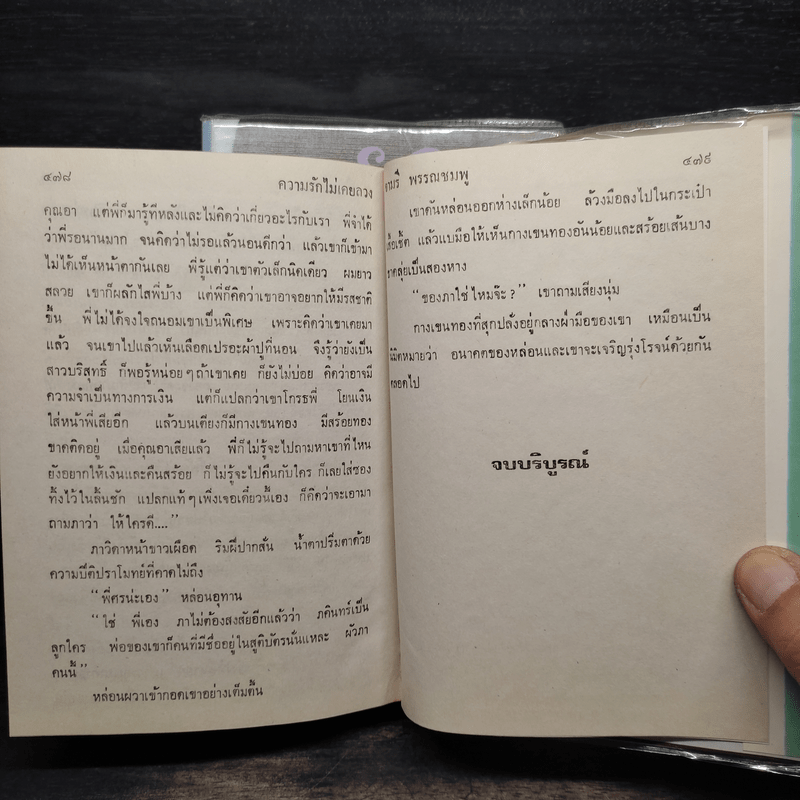 ๔๗๘
ความรักไม่เคยลวง
คุณอา แต่พี่ก็มารู้ทีหลังและไม่คิดว่าเกี่ยวอะไรกับเรา พี่จำได้
ว่าพี่รอนานมาก จนคิดว่าไม่รอแล้วนอนดีกว่า แล้วเขาก็เข้ามา
ไม่ได้เห็นหน้าตากันเลย พี่รู้แต่ว่าเขาตัวเล็กนิดเดียว ผมยาว
สลวย เขาก็ผลักไสพี่บ้าง แต่พี่ก็คิดว่าเขาอาจอยากให้มีรสชาติ
ขึ้น พี่ไม่ได้จงใจถนอมเขาเป็นพิเศษ เพราะคิดว่าเขาเคยมา
แล้ว จนเขาไปแล้วเห็นเลือดเปรอะผ้าปูที่นอน จึงรู้ว่ายังเป็น
สาวบริสุทธิ์ ก็พอรู้หน่อยๆ ถ้าเขาเคย ก็ยังไม่บ่อย คิดว่าอาจมี
ความจำเป็นทางการเงิน แต่ก็แปลกว่าเขาโกรธพี่ โยนเงิน
ใส่หน้าพี่เสียอีก แล้วบนเตียงก็มีกางเขนทอง มีสร้อยทอง
ขาดติดอยู่ เมื่อคุณอาเสียแล้ว พี่ก็ไม่รู้จะไปถามหาเขาที่ไหน
ยังอยากให้เงินและคืนสร้อย ก็ไม่รู้จะไปคืนกับใคร ก็เลยใส่ซอง
ทิ้งไว้ในลิ้นชัก แปลกแท้ๆ เพิ่งเจอเดี๋ยวนี้เอง ก็คิดว่าจะเอามา
ถามภาว่า ให้ใครดี....”
ภาวิตาหน้าขาวเผือด ริมฝีปากสั่น น้ำตาปริ่มตาด้วย
ความปีติปราโมทย์ที่คาดไม่ถึง
“พี่ศรน่ะเอง” หล่อนอุทาน
“ใช่ พี่เอง ภาไม่ต้องสงสัยอีกแล้วว่า ภคินทร์เป็น
ลูกใคร พ่อของเขาก็คนที่มีชื่ออยู่ในสูติบัตรนั่นแหละ ผัวภา
คนนี้”
หล่อนผวาเข้ากอดเขาอย่างเต็มตื้น
พรรณชมพู
๔๗๙
เขาดันหล่อนออกห่างเล็กน้อย ล้วงมือลงไปในกระเป๋า
แล้วแบมือให้เห็นกางเขนทองอันน้อยและสร้อยเส้นบาง
เป็นสองหาง
“ของภาใช่ไหมจ๊ะ?” เขาถามเสียงนุ่ม
กางเขนทองที่สุกปลั่งอยู่กลางฝ่ามือของเขา เหมือนเป็น
อนาคตของหล่อนและเขาจะเจริญรุ่งโรจน์ด้วยกัน
ตลอดไป
จบบริบูรณ์